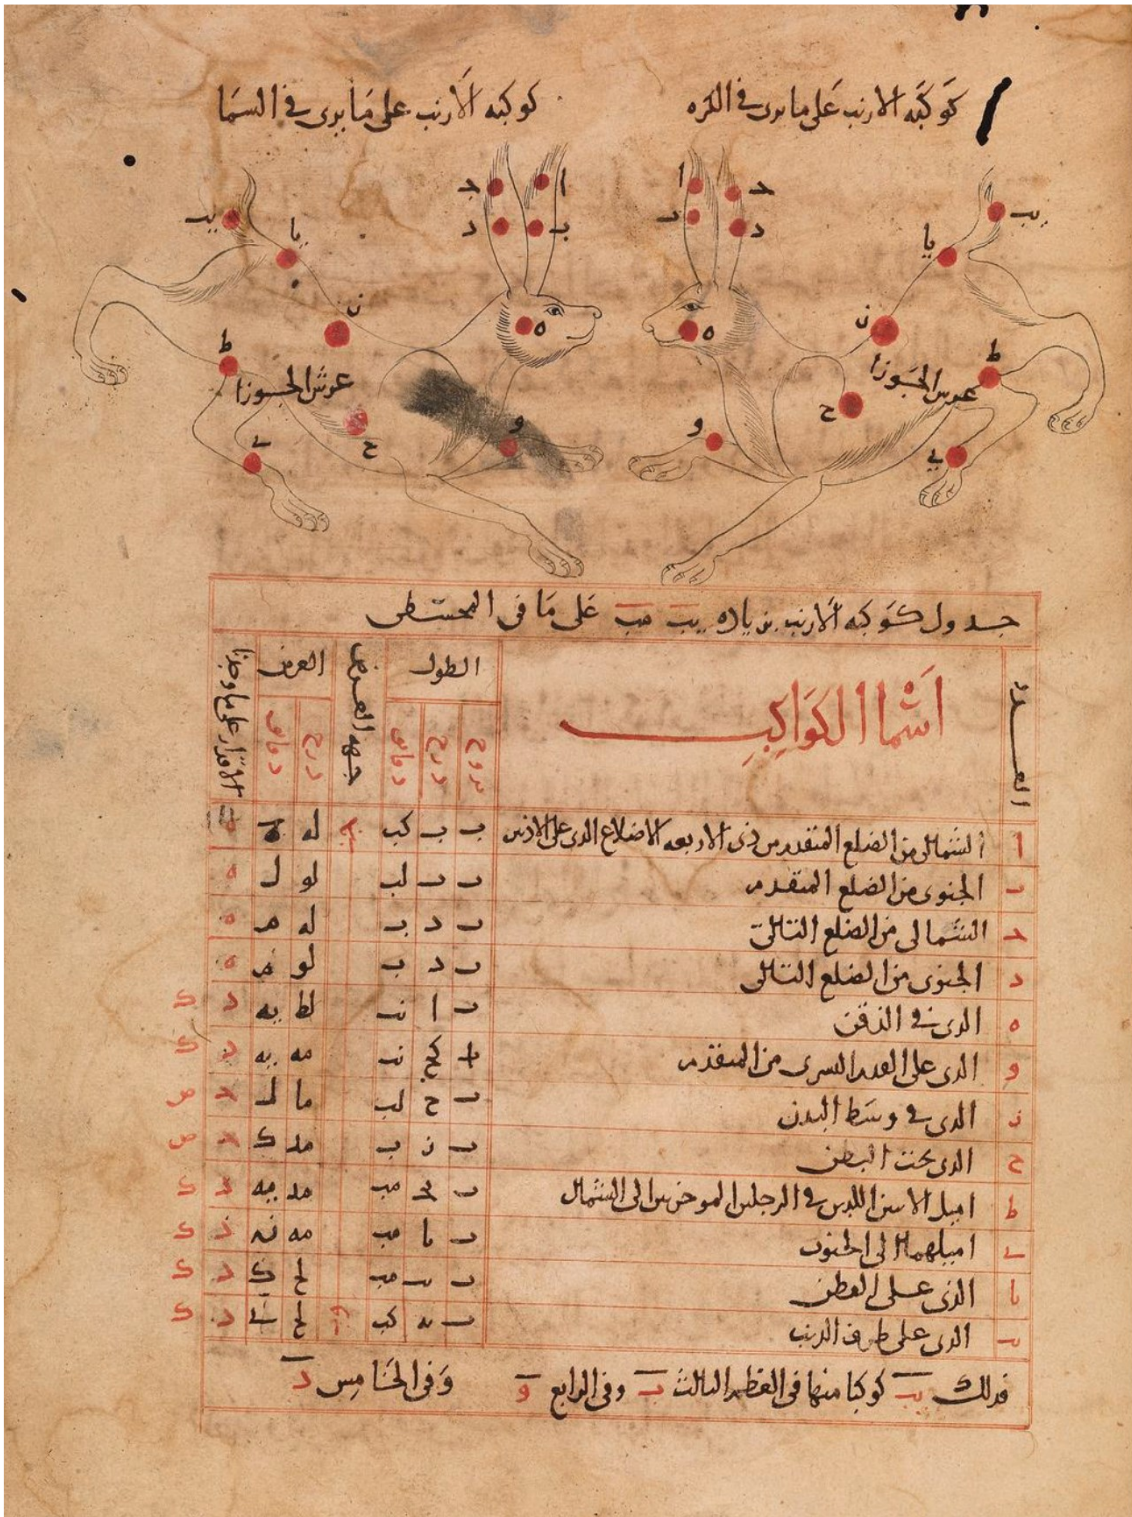 كوكبه الارنب على ما يرى في الكره
كوكبه الارنب على ما يرى في السما
ا
د
ب
يا
يب
ن
ط
ح
و
ه
ى
عرش الجوزا
عرش الجوزا
جدول كوكبه الارنب بزياده يب مب على ما في المجسطى
العدد
اسما الكواكب
الطول
جهه العرض
العرض
الاقدار على ما وجدنا
بروج
درج
دقايق
درج
دقايق
ا الشمالى من الضلع المتقدم من ذى الاربعه الاضلاع الذى على الاذنين ب ب كب له
ب الجنوبى من الضلع المتقدم ب ب لب لو ل ه
ج الشمالى من الضلع التالى ب د ب له م ه
د الجنوبى من الضلع التالى ب د ب لو م ه
ه الذى في الذقن ب ا نب لط يه د ك
و الذى على القدم اليسرى من المتقدم ا كح نب مه يه د ك
ز الذى في وسط البدن ب ح لب ما ل ج ص
ح الذى تحت البطن ب ز ب مد ك ج ص
ط اميل الاثنين اللذين في الرجلين الموخرتين الى الشمال ب مب مد يه د ك
ى اميلهما الى الجنوب ب يا مب مه ن د ك
يا الذى على القطن ب يب مب لح ك د ك
يب الذى على طرف الذنب ب يه كب لح ى د ك
فذلك يب كوكبا منها في العظم الثالث ب وفى الرابع و وفى الخامس د